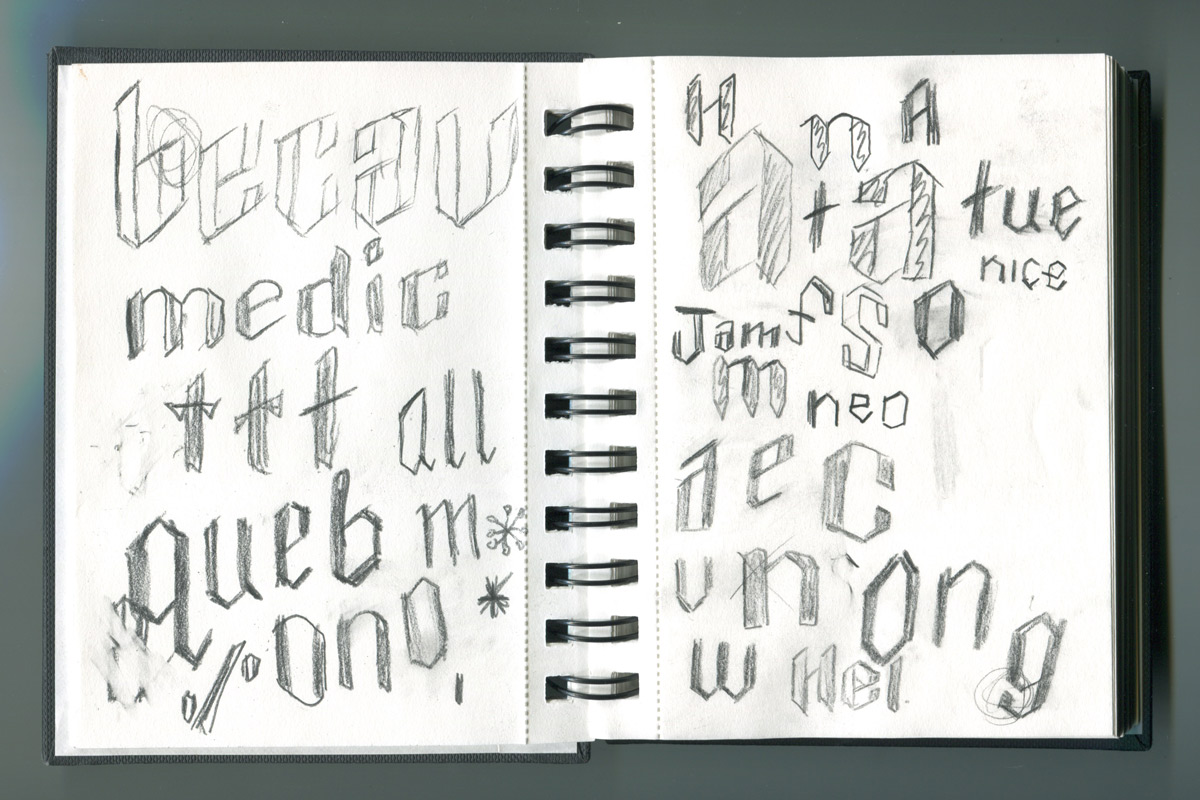 becau
medic
ttt all
queb m*
%ono *
,
H m A
a t a tue
nice
Jamf S O
m neo
a e c
v n i o n g
w Hel.